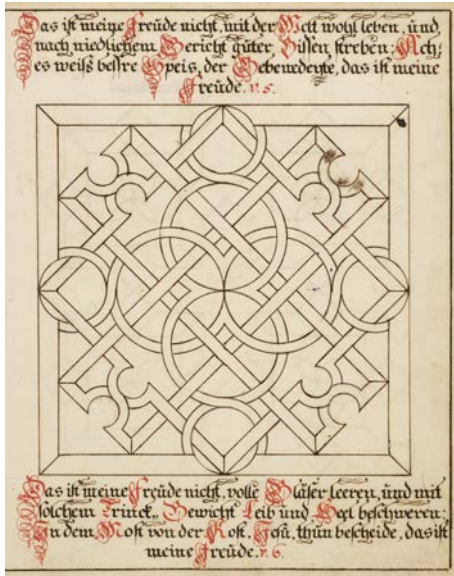 Das ist meine Freude nicht, mit der Welt wohl leben, und
nach niedlichem Gericht guter, Bissen streben: Ach,
es weiß beßre Speis, der Gebenedeyte, das ist meine
Freude. v. 5.
Das ist meine Freude nicht, volle Gläser leeren, und mit
solchem Trinck-Gewicht Leib und Seel beschweren:
In dem Most von der Kost, Jesu, thun bescheide, das ist
meine Freude. v. 6.